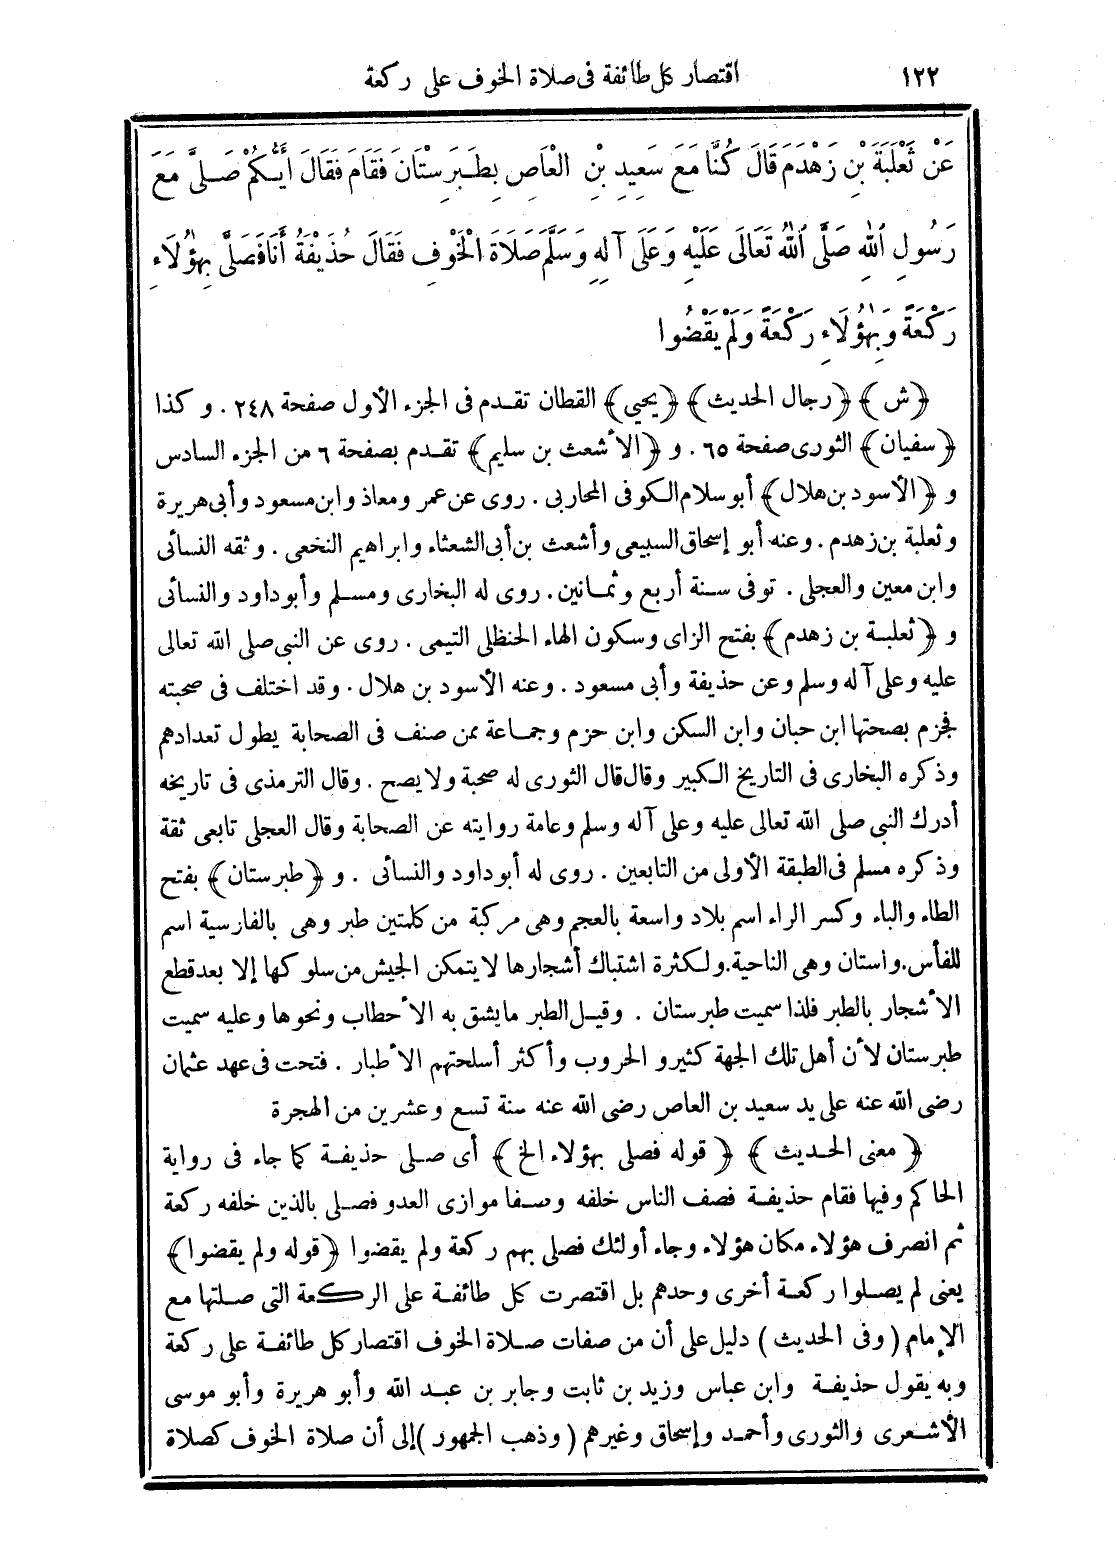 ١٢٢ اقتصار كل طائفة فى صلاة الخوف على ركعة
عَنْ ثَعْلَبَةَ بْنِ زَهْدَمَ قَالَ كُنَّا مَعَ سَعِيدِ بْنِ الْعَاصِ بِطَبَرِسْتَانَ فَقَامَ فَقَالَ أَيُّكُمْ صَلَّى مَعَ
رَسُولِ اللهِ صَلَّى اللهُ تَعَالَى عَلَيْهِ وَعَلَى آلِهِ وَسَلَّمَ صَلَاةَ الْخَوْفِ فَقَالَ حُذَيْفَةُ أَنَا فَصَلَّى بِهٰؤُلَاءِ
رَكْعَةً وَبِهٰؤُلَاءِ رَكْعَةً وَلَمْ يَقْضُوا
﴿ش﴾ ﴿رجال الحديث﴾ ﴿يحيي﴾ القطان تقدم فى الجزء الأول صفحة ٢٤٨ . وكذا
﴿سفيان﴾ الثورى صفحة ٦٥ . و ﴿الأشعث بن سليم﴾ تقدم بصفحة ٦ من الجزء السادس
و ﴿الأسود بن هلال﴾ أبو سلام الكوفى المحاربى . روى عن عمر ومعاذ وابن مسعود وأبى هريرة
وثعلبة بن زهدم . وعنه أبو إسحاق السبيعى وأشعث بن أبى الشعثاء وابراهيم النخعى . وثقه النسائى
وابن معين والعجلى . توفى سنة أربع وثمانين . روى له البخارى ومسلم وأبو داود والنسائى
و ﴿ثعلبة بن زهدم﴾ بفتح الزاى وسكون الهاء الحنظلى التيمى . روى عن النبى صلى الله تعالى
عليه وعلى آله وسلم وعن حذيفة وأبى مسعود . وعنه الأسود بن هلال . وقد اختلف فى صحبته
فجزم بصحتها ابن حبان وابن السكن وابن حزم وجماعة ممن صنف فى الصحابة يطول تعدادهم
وذكره البخارى فى التاريخ الكبير وقال قال الثورى له صحبة ولا يصح . وقال الترمذى فى تاريخه
أدرك النبى صلى الله تعالى عليه وعلى آله وسلم وعامة روايته عن الصحابة وقال العجلى تابعى ثقة
وذكره مسلم فى الطبقة الأولى من التابعين . روى له أبو داود والنسائى . و ﴿طبرستان﴾ بفتح
الطاء والباء وكسر الراء اسم بلاد واسعة بالعجم وهى مركبة من كلمتين طبر وهى بالفارسية اسم
للفأس . واستان وهى الناحية . ولكثرة اشتباك أشجارها لا يتمكن الجيش من سلوكها إلا بعد قطع
الأشجار بالطبر فلذا سميت طبرستان . وقيل الطبر ما يشق به الأحطاب ونحوها وعليه سميت
طبرستان لأن أهل تلك الجهة كثيرو الحروب وأكثر أسلحتهم الأطبار . فتحت فى عهد عثمان
رضى الله عنه على يد سعيد بن العاص رضى الله عنه سنة تسع وعشرين من الهجرة
﴿معنى الحديث﴾ ﴿قوله فصلى بهؤلاء الخ﴾ أى صلى حذيفة كما جاء فى رواية
الحاكم وفيها فقام حذيفة فصف الناس خلفه وصفا موازى العدو فصلى بالذين خلفه ركعة
ثم انصرف هؤلاء مكان هؤلاء وجاء أولئك فصلى بهم ركعة ولم يقضوا ﴿قوله ولم يقضوا﴾
يعنى لم يصلوا ركعة أخرى وحدهم بل اقتصرت كل طائفة على الركعة التى صلتها مع
الإمام (وفى الحديث) دليل على أن من صفات صلاة الخوف اقتصار كل طائفة على ركعة
وبه يقول حذيفة وابن عباس وزيد بن ثابت وجابر بن عبد الله وأبو هريرة وأبو موسى
الأشعرى والثورى وأحمد وإسحاق وغيرهم (وذهب الجمهور) إلى أن صلاة الخوف كصلاة